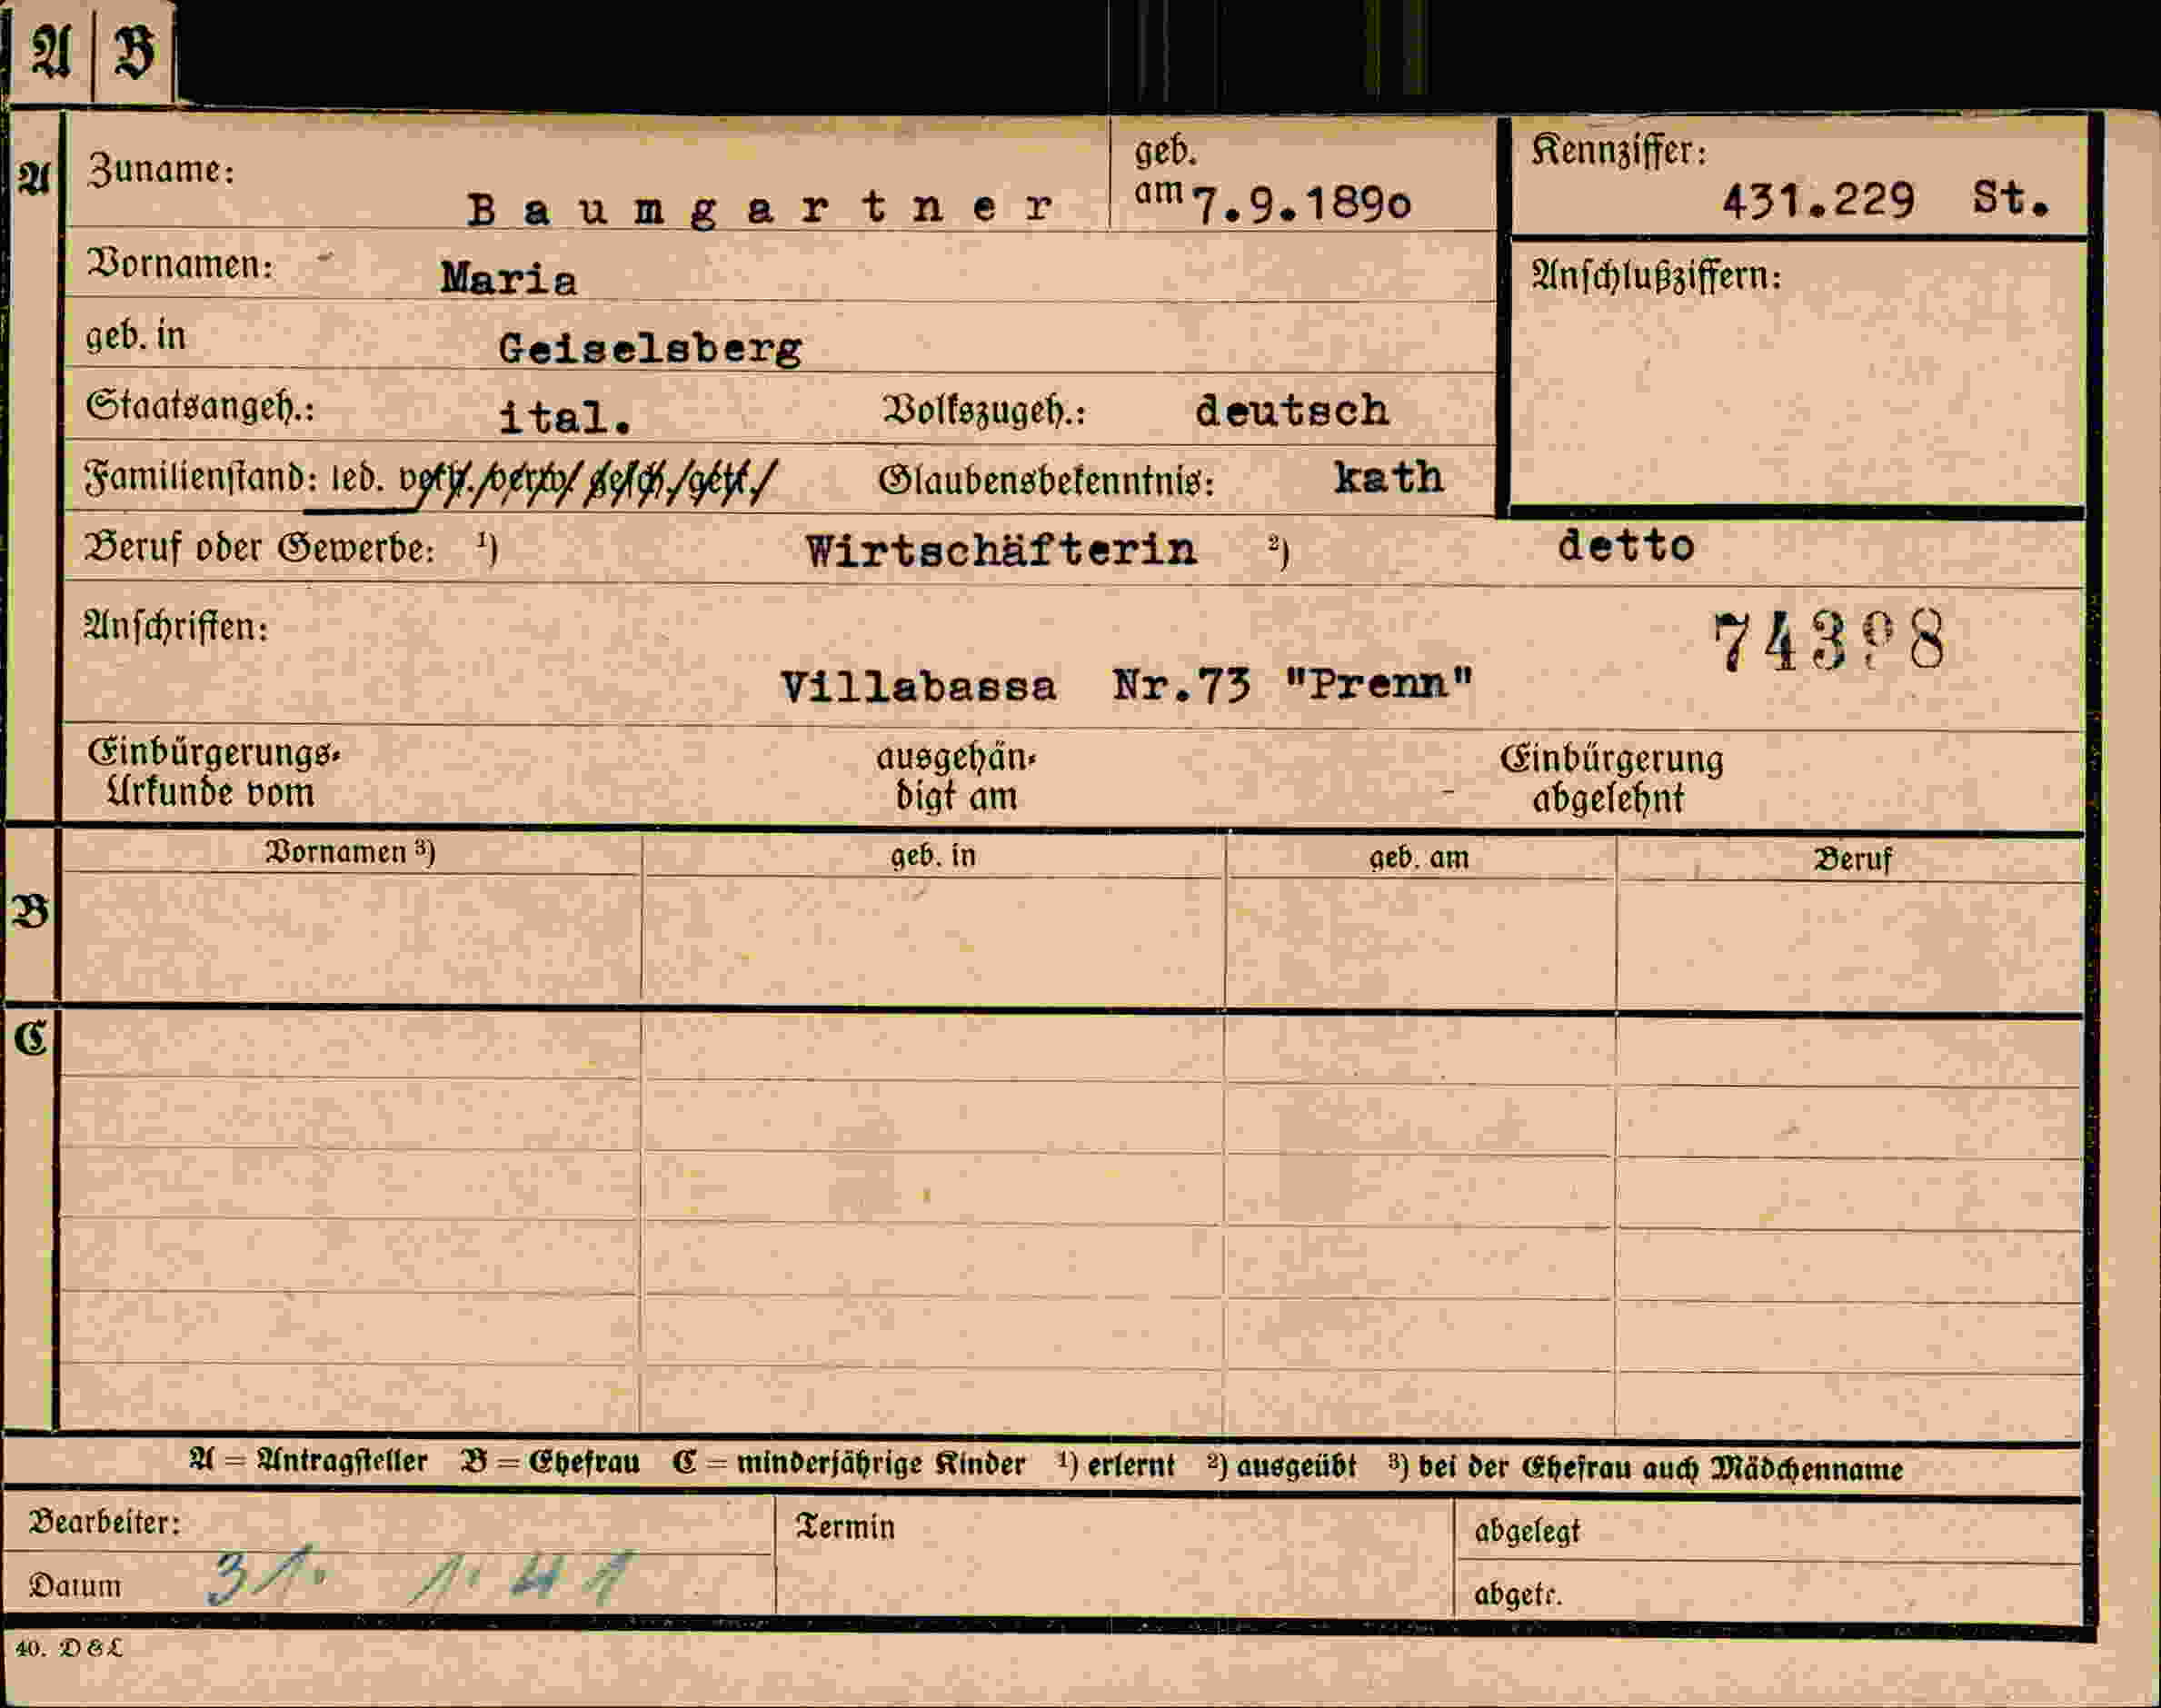 A B
A
Zuname: Baumgartner geb. am 7.9.1890 Kennziffer: 431.229 St.
Vornamen: Maria Anschlußziffern:
geb. in Geiselsberg
Staatsangeh.: ital. Volkszugeh.: deutsch
Familienstand: led. verh./verw./gesch./getr./ Glaubensbekenntnis: kath
Beruf oder Gewerbe: ¹) Wirtschäfterin ²) detto
Anschriften: 
Villabassa Nr.73 "Prenn"
Einbürgerungs-Urkunde vom ausgehändigt am Einbürgerung abgelehnt
B Vornamen ³) geb. in geb. am Beruf
C
A = Antragsteller B = Ehefrau C = minderjährige Kinder ¹) erlernt ²) ausgeübt ³) bei der Ehefrau auch Mädchenname
Bearbeiter: Termin abgelegt
Datum 31. 1. 41 abgetr.
40. D & L